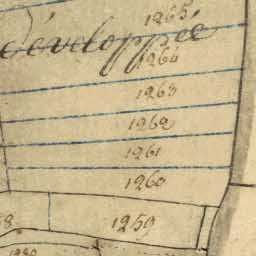 1265
développée
1264
1263
1262
1261
1260
1259